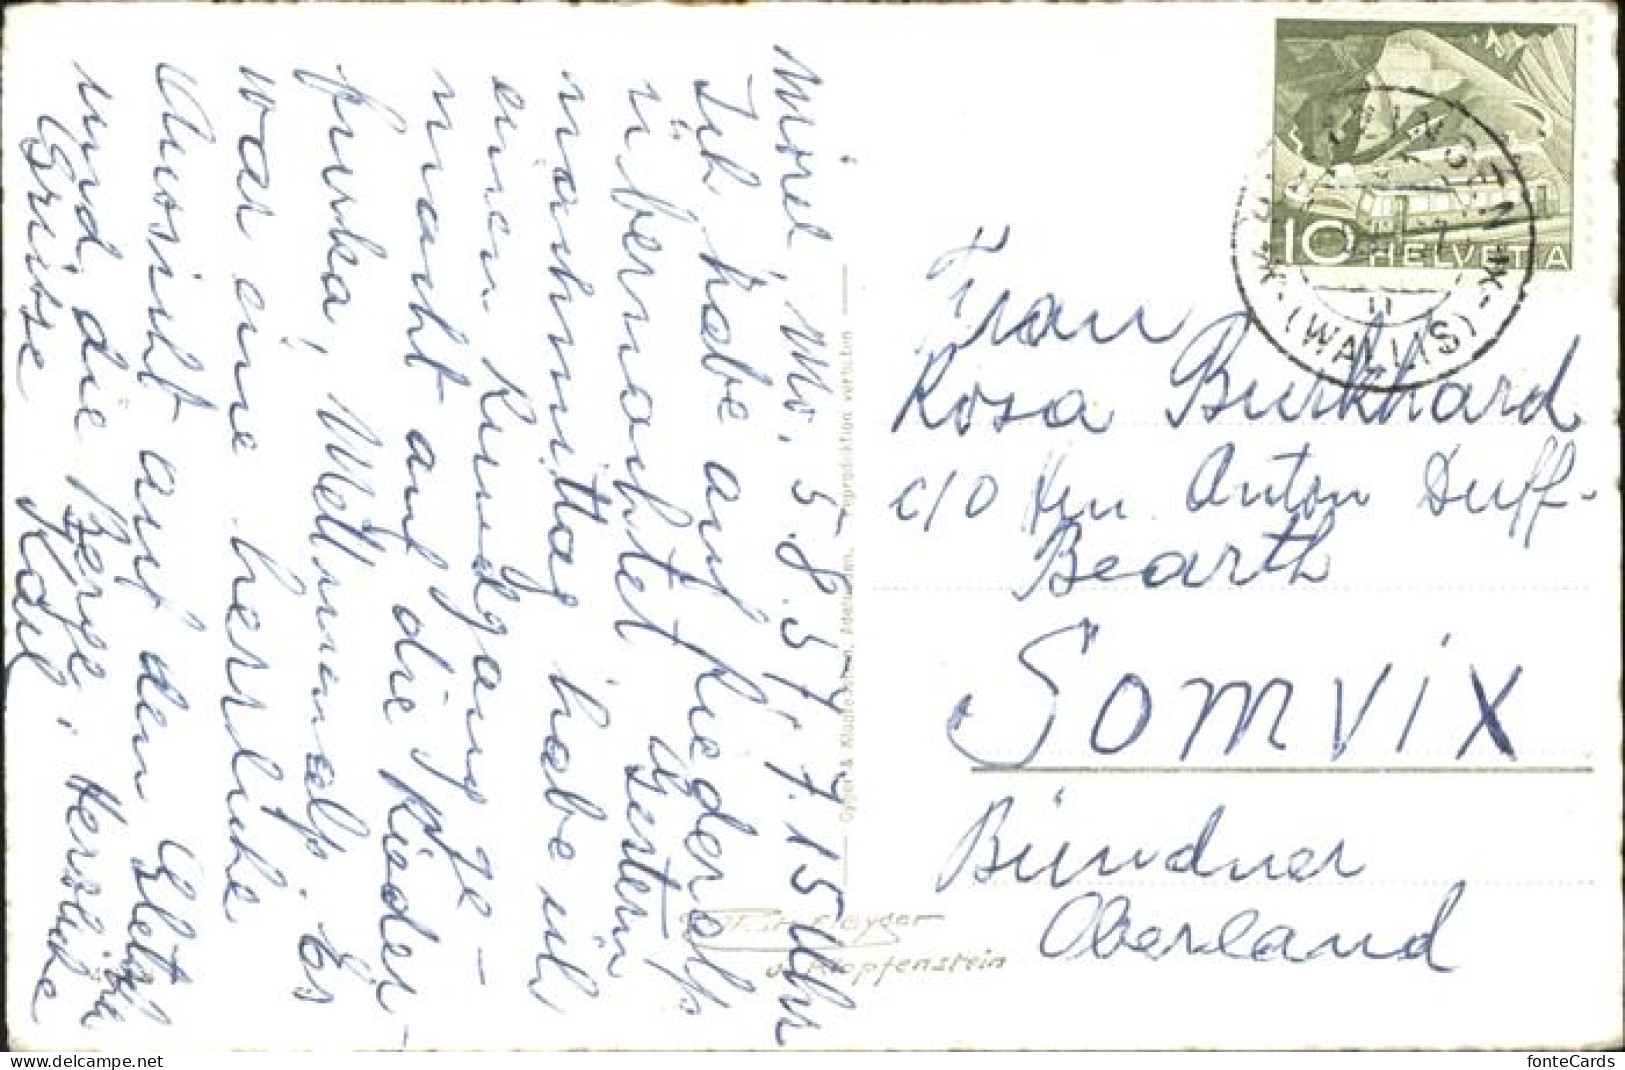 Mörel, Mi. 5.8.54, 7.15 Uhr
Ich habe auf Riederalp
übernachtet. Gestern
nachmittag habe ich
einen Rundgang ge-
macht auf die Rieder-
furka,
war eine herrliche
Aussicht auf den
und die Berge. Herzliche
Grüsse Karl
Gyger & Klopfenstein, Adelboden. Reproduktion verboten
Gyger
Klopfenstein
10 HELVETIA
(WALLIS)
Frau
Rosa Burkhard
c/o Hrn. Anton Duff-
Bearth
Somvix
Bündner
Oberland
fonteCards